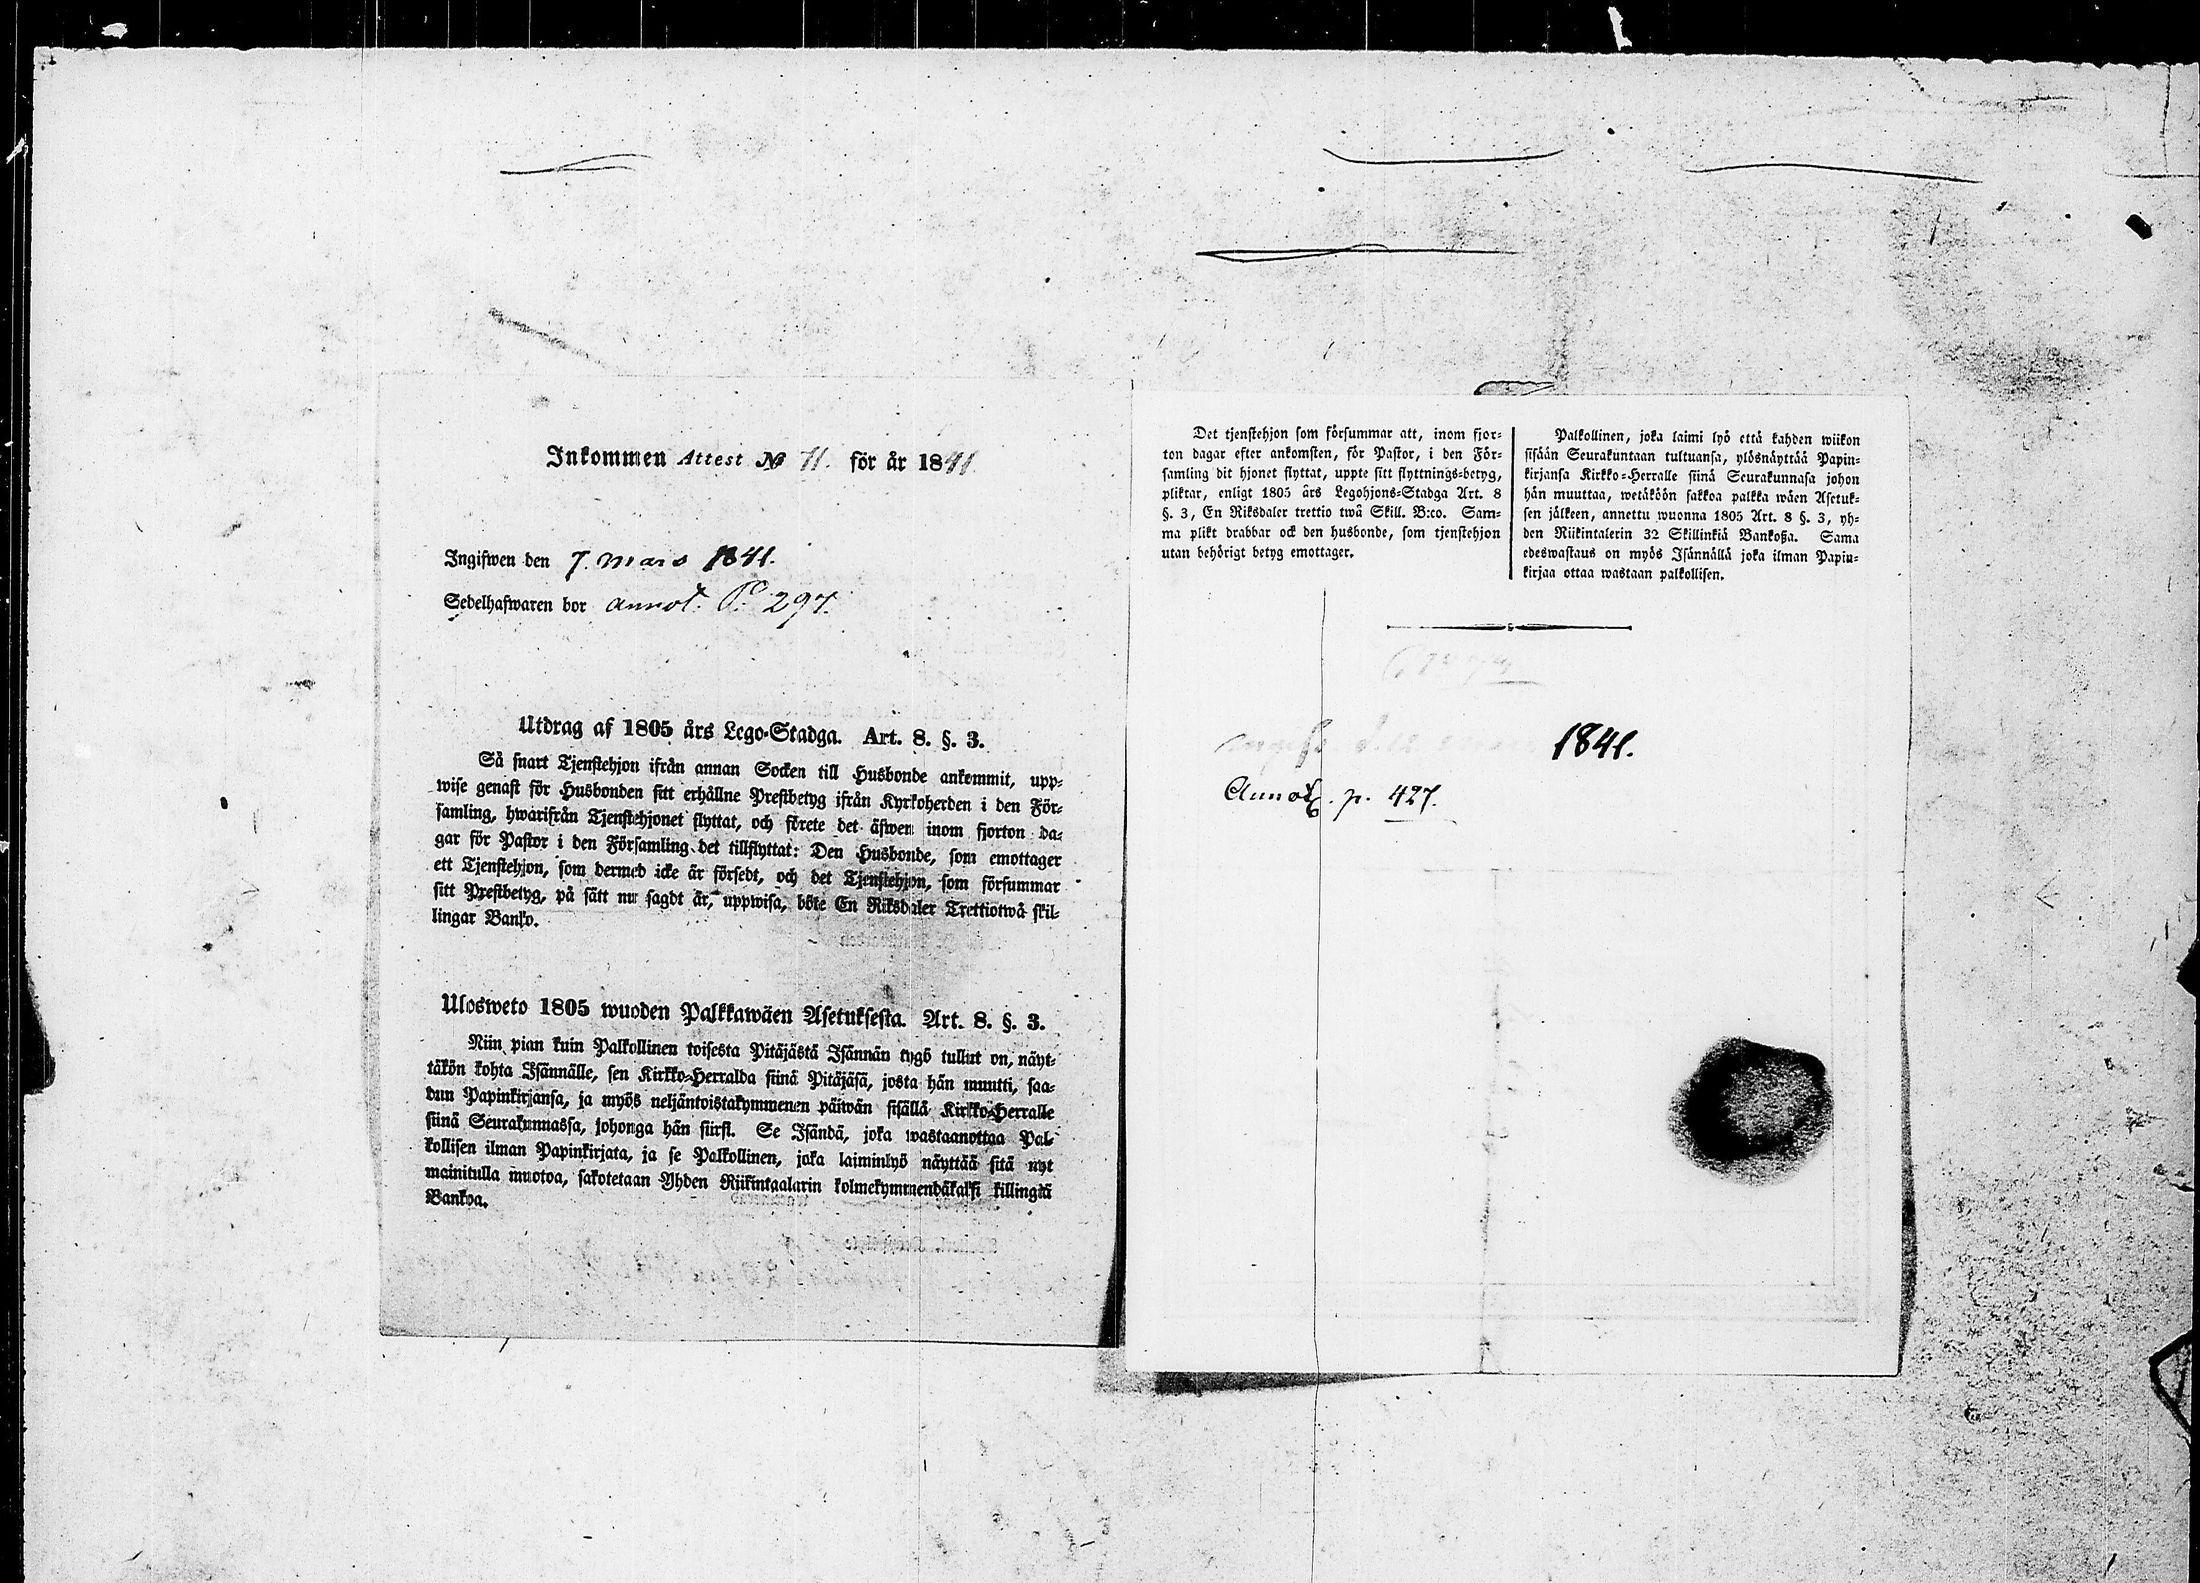 Inkommen Attest № 71. för år 1841
Ingifwen den 7. Mars 1841.
Sedelhafwaren bor annot. P. 297.
Utdrag af 1805 års Lego-Stadga. Art. 8. §. 3.
Så snart Tjenstehjon ifrån annan Socken till Husbonde ankommit, upp-
wise genast för Husbonden sitt erhållne Prestbetyg ifrån Kyrkoherden i den För-
samling, hwarifrån Tjenstehjonet flyttat, och förete det äfwen inom fjorton da-
gar för Pastor i den Församling det tillflyttat: Den Husbonde, som emottager
ett Tjenstehjon, som dermed icke är försedt, och det Tjenstehjon, som försummar
sitt Prestbetyg, på sätt nu sagdt är, uppwisa, böte En Riksdaler Trettiotwå skil-
lingar Banko.
Ulosweto 1805 wuoden Palkkawäen Asetuksesta. Art. 8. §. 3.
Niin pian kuin Palkollinen toisesta Pitäjästä Isännän tygö tullut on, näyt-
täkön kohta Isännälle, sen Kirkko-Herralda siinä Pitäjäsä, josta hän muutti, saa-
dun Papinkirjansa, ja myös neljäntoistakymmenen päiwän sisällä Kirkko-Herralle
siinä Seurakunnassa, johonga hän siirsi. Se Isändä, joka wastaanottaa Pal-
kollisen ilman Papinkirjata, ja se Palkollinen, joka laiminlyö näyttää sitä nyt
mainitulla muotoa, sakotetaan Yhden Riikintaalarin kolmekymmendäkaksi killingiä
Bankoa.
Det tjenstehjon som försummar att, inom fjor-
ton dagar efter ankomsten, för Pastor, i den För-
samling dit hjonet flyttat, uppte sitt flyttnings-betyg,
pliktar, enligt 1805 års Legohjons-Stadga Art. 8
§. 3, En Riksdaler trettio twå Skill. B:co. Sam-
ma plikt drabbar ock den husbonde, som tjenstehjon
utan behörigt betyg emottager.
Palkollinen, joka laimi lyö että kahden wiikon
sisään Seurakuntaan tultuansa, ylösnäyttää Papin-
kirjansa Kirkko-Herralle siinä Seurakunnasa johon
hän muuttaa, wetäköön sakkoa palkka wäen Asetuk-
sen jälkeen, annettu wuonna 1805 Art. 8 §. 3, yh-
den Riikintalerin 32 Skillinkiä Bankoßa. Sama
edeswastaus on myös Isännällä joka ilman Papin-
kirjaa ottaa wastaan palkollisen.
1841.
Annot. p. 427.